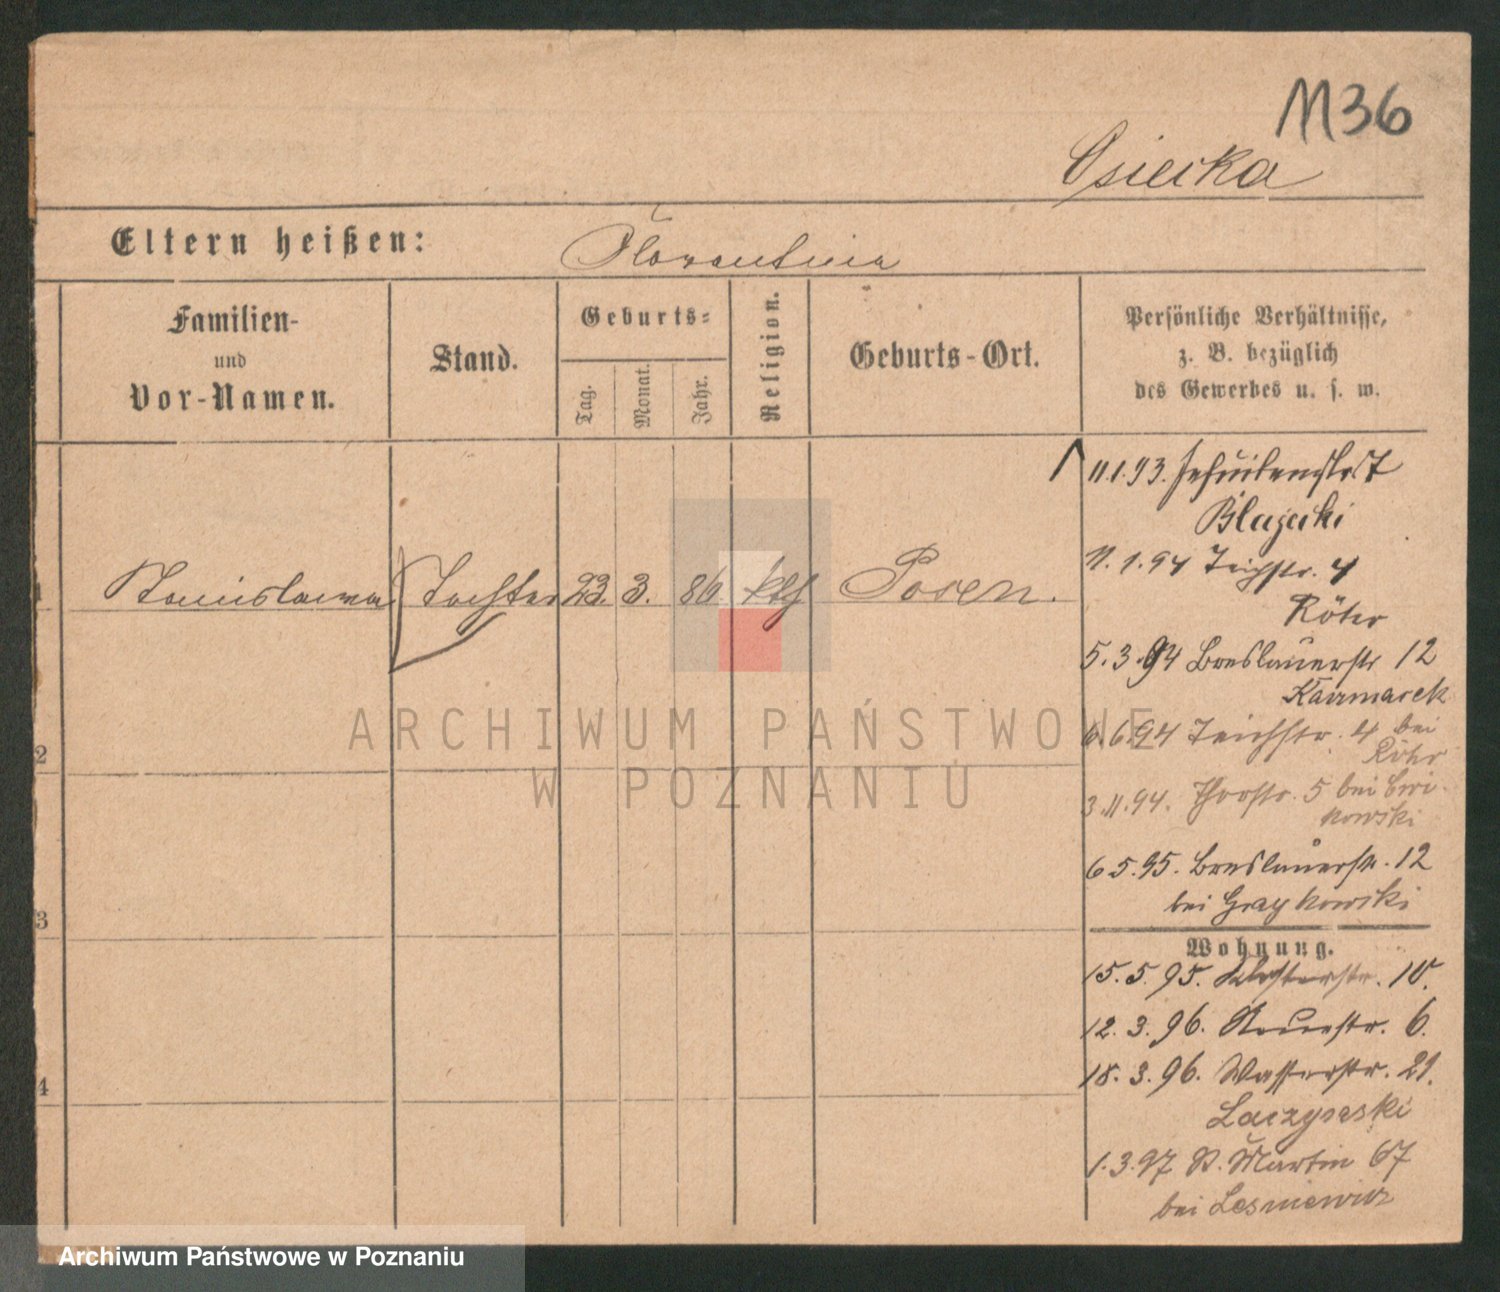 1136
Osiecka
Eltern heißen: Florentina
Familien-
und
Vor-Namen.
Stand.
Geburts-
Tag.
Monat.
Jahr.
Religion.
Geburts-Ort.
Persönliche Verhältnisse,
z. B. bezüglich
des Gewerbes u. s. w.
11.1.93. Jesuitenstr. 7
Blazecki
1 Stanislawa Tochter 23. 3. 86 kth Posen.
11.1.94 Teichstr. 4
Röhr
5.3.94 Breslauerstr 12
Kaczmarek
6.6.94 Teichstr. 4 bei
Röhr
3.11.94. Thorstr. 5 bei Cwi-
kowski
6.5.95. Breslauerstr. 12
bei Graykowski
Wohnung.
15.5.95. Klosterstr. 10.
12.3.96. Neuestr. 6.
18.3.96. Wasserstr. 21.
1.3.97 St. Martin 67
bei Lesniewicz
2
3
4
ARCHIWUM PAŃSTWOWE
W POZNANIU
Archiwum Państwowe w Poznaniu